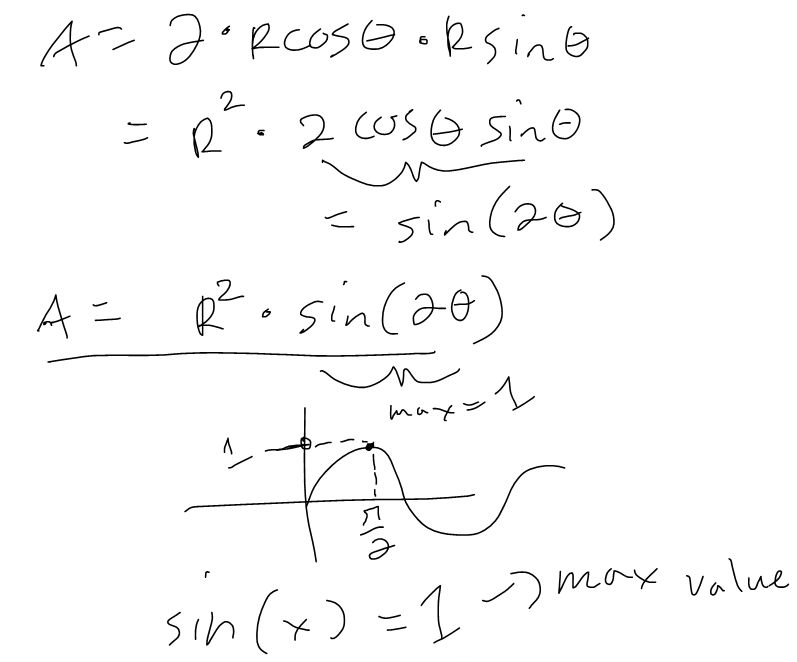 A = 2 · R cosθ · R sinθ
= R² · 2 cosθ sinθ
= sin(2θ)
A = R² · sin(2θ)
max = 1
1
π/2
sin(x) = 1 → max value